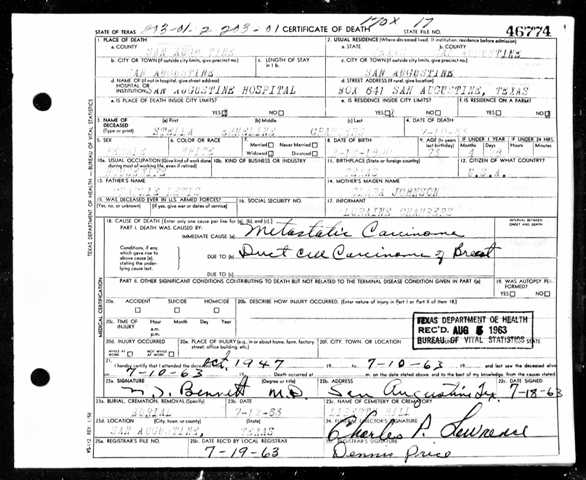 170X 17
STATE OF TEXAS 203-01-2-203-01 CERTIFICATE OF DEATH STATE FILE NO. 46774
1. PLACE OF DEATH
a. COUNTY
SAN AUGUSTINE
2. USUAL RESIDENCE (Where deceased lived. If institution: residence before admission)
a. STATE b. COUNTY
b. CITY OR TOWN (If outside city limits, give precinct no.) c. LENGTH OF STAY in 1 b.
SAN AUGUSTINE
c. CITY OR TOWN (If outside city limits, give precinct no.)
SAN AUGUSTINE
d. NAME OF (If not in hospital, give street address) HOSPITAL OR INSTITUTION
SAN AUGUSTINE HOSPITAL
d. STREET ADDRESS (If rural, give location)
BOX 641 SAN AUGUSTINE, TEXAS
e. IS PLACE OF DEATH INSIDE CITY LIMITS? YES NO
e. IS RESIDENCE INSIDE CITY LIMITS? YES NO
f. IS RESIDENCE ON A FARM? YES NO
3. NAME OF DECEASED (Type or print) (a) First (b) Middle (c) Last
4. DATE OF DEATH
5. SEX 6. COLOR OR RACE 7. Married Never Married Widowed Divorced
8. DATE OF BIRTH 9. AGE (In years last birthday) IF UNDER 1 YEAR Months Days IF UNDER 24 HRS. Hours Min.
10a. USUAL OCCUPATION (Give kind of work done during most of working life, even if retired) 10b. KIND OF BUSINESS OR INDUSTRY
11. BIRTHPLACE (State or foreign country) 12. CITIZEN OF WHAT COUNTRY?
U.S.A.
13. FATHER'S NAME
14. MOTHER'S MAIDEN NAME
JOHNSON
15. WAS DECEASED EVER IN U.S. ARMED FORCES? (Yes, no, or unknown) (If yes, give war or dates of service) 16. SOCIAL SECURITY NO.
17. INFORMANT
18. CAUSE OF DEATH [Enter only one cause per line for (a), (b), and (c).] INTERVAL BETWEEN ONSET AND DEATH
PART I. DEATH WAS CAUSED BY:
IMMEDIATE CAUSE (a) Metastatic Carcinoma
Conditions, if any, which gave rise to above cause (a), stating the underlying cause last.
DUE TO (b) Duct Cell Carcinoma of Breast
DUE TO (c)
PART II. OTHER SIGNIFICANT CONDITIONS CONTRIBUTING TO DEATH BUT NOT RELATED TO THE TERMINAL DISEASE CONDITION GIVEN IN PART I (a)
19. WAS AUTOPSY PERFORMED? YES NO
20a. ACCIDENT SUICIDE HOMICIDE
20b. DESCRIBE HOW INJURY OCCURRED. (Enter nature of injury in Part I or Part II of item 18.)
20c. TIME OF INJURY Hour Month Day Year a.m. p.m.
TEXAS DEPARTMENT OF HEALTH
REC'D. AUG 5 1963
BUREAU OF VITAL STATISTICS
20d. INJURY OCCURRED WHILE AT WORK NOT WHILE AT WORK
20e. PLACE OF INJURY (e.g., in or about home, farm, factory, street, office building, etc.)
20f. CITY, TOWN, OR LOCATION COUNTY STATE
21. I hereby certify that I attended the deceased from Oct, 1947 to 7-10-63
7-10-63 Death occurred at m. on the date stated above, and to the best of my knowledge, from the causes stated.
22a. SIGNATURE (Degree or title) Bennett M.D.
22b. ADDRESS San Augustine Tx.
22c. DATE SIGNED 7-18-63
23a. BURIAL, CREMATION, REMOVAL (Specify) BURIAL
23b. DATE
23c. NAME OF CEMETERY OR CREMATORY HILL
23d. LOCATION (City, town, or county) (State)
SAN AUGUSTINE, TEXAS
24. FUNERAL DIRECTOR'S SIGNATURE
Charles P. Lawrence
25a. REGISTRAR'S FILE NO. 25b. DATE REC'D BY LOCAL REGISTRAR 7-19-63
25c. REGISTRAR'S SIGNATURE Dennis Price
TEXAS DEPARTMENT OF HEALTH — BUREAU OF VITAL STATISTICS
MEDICAL CERTIFICATION